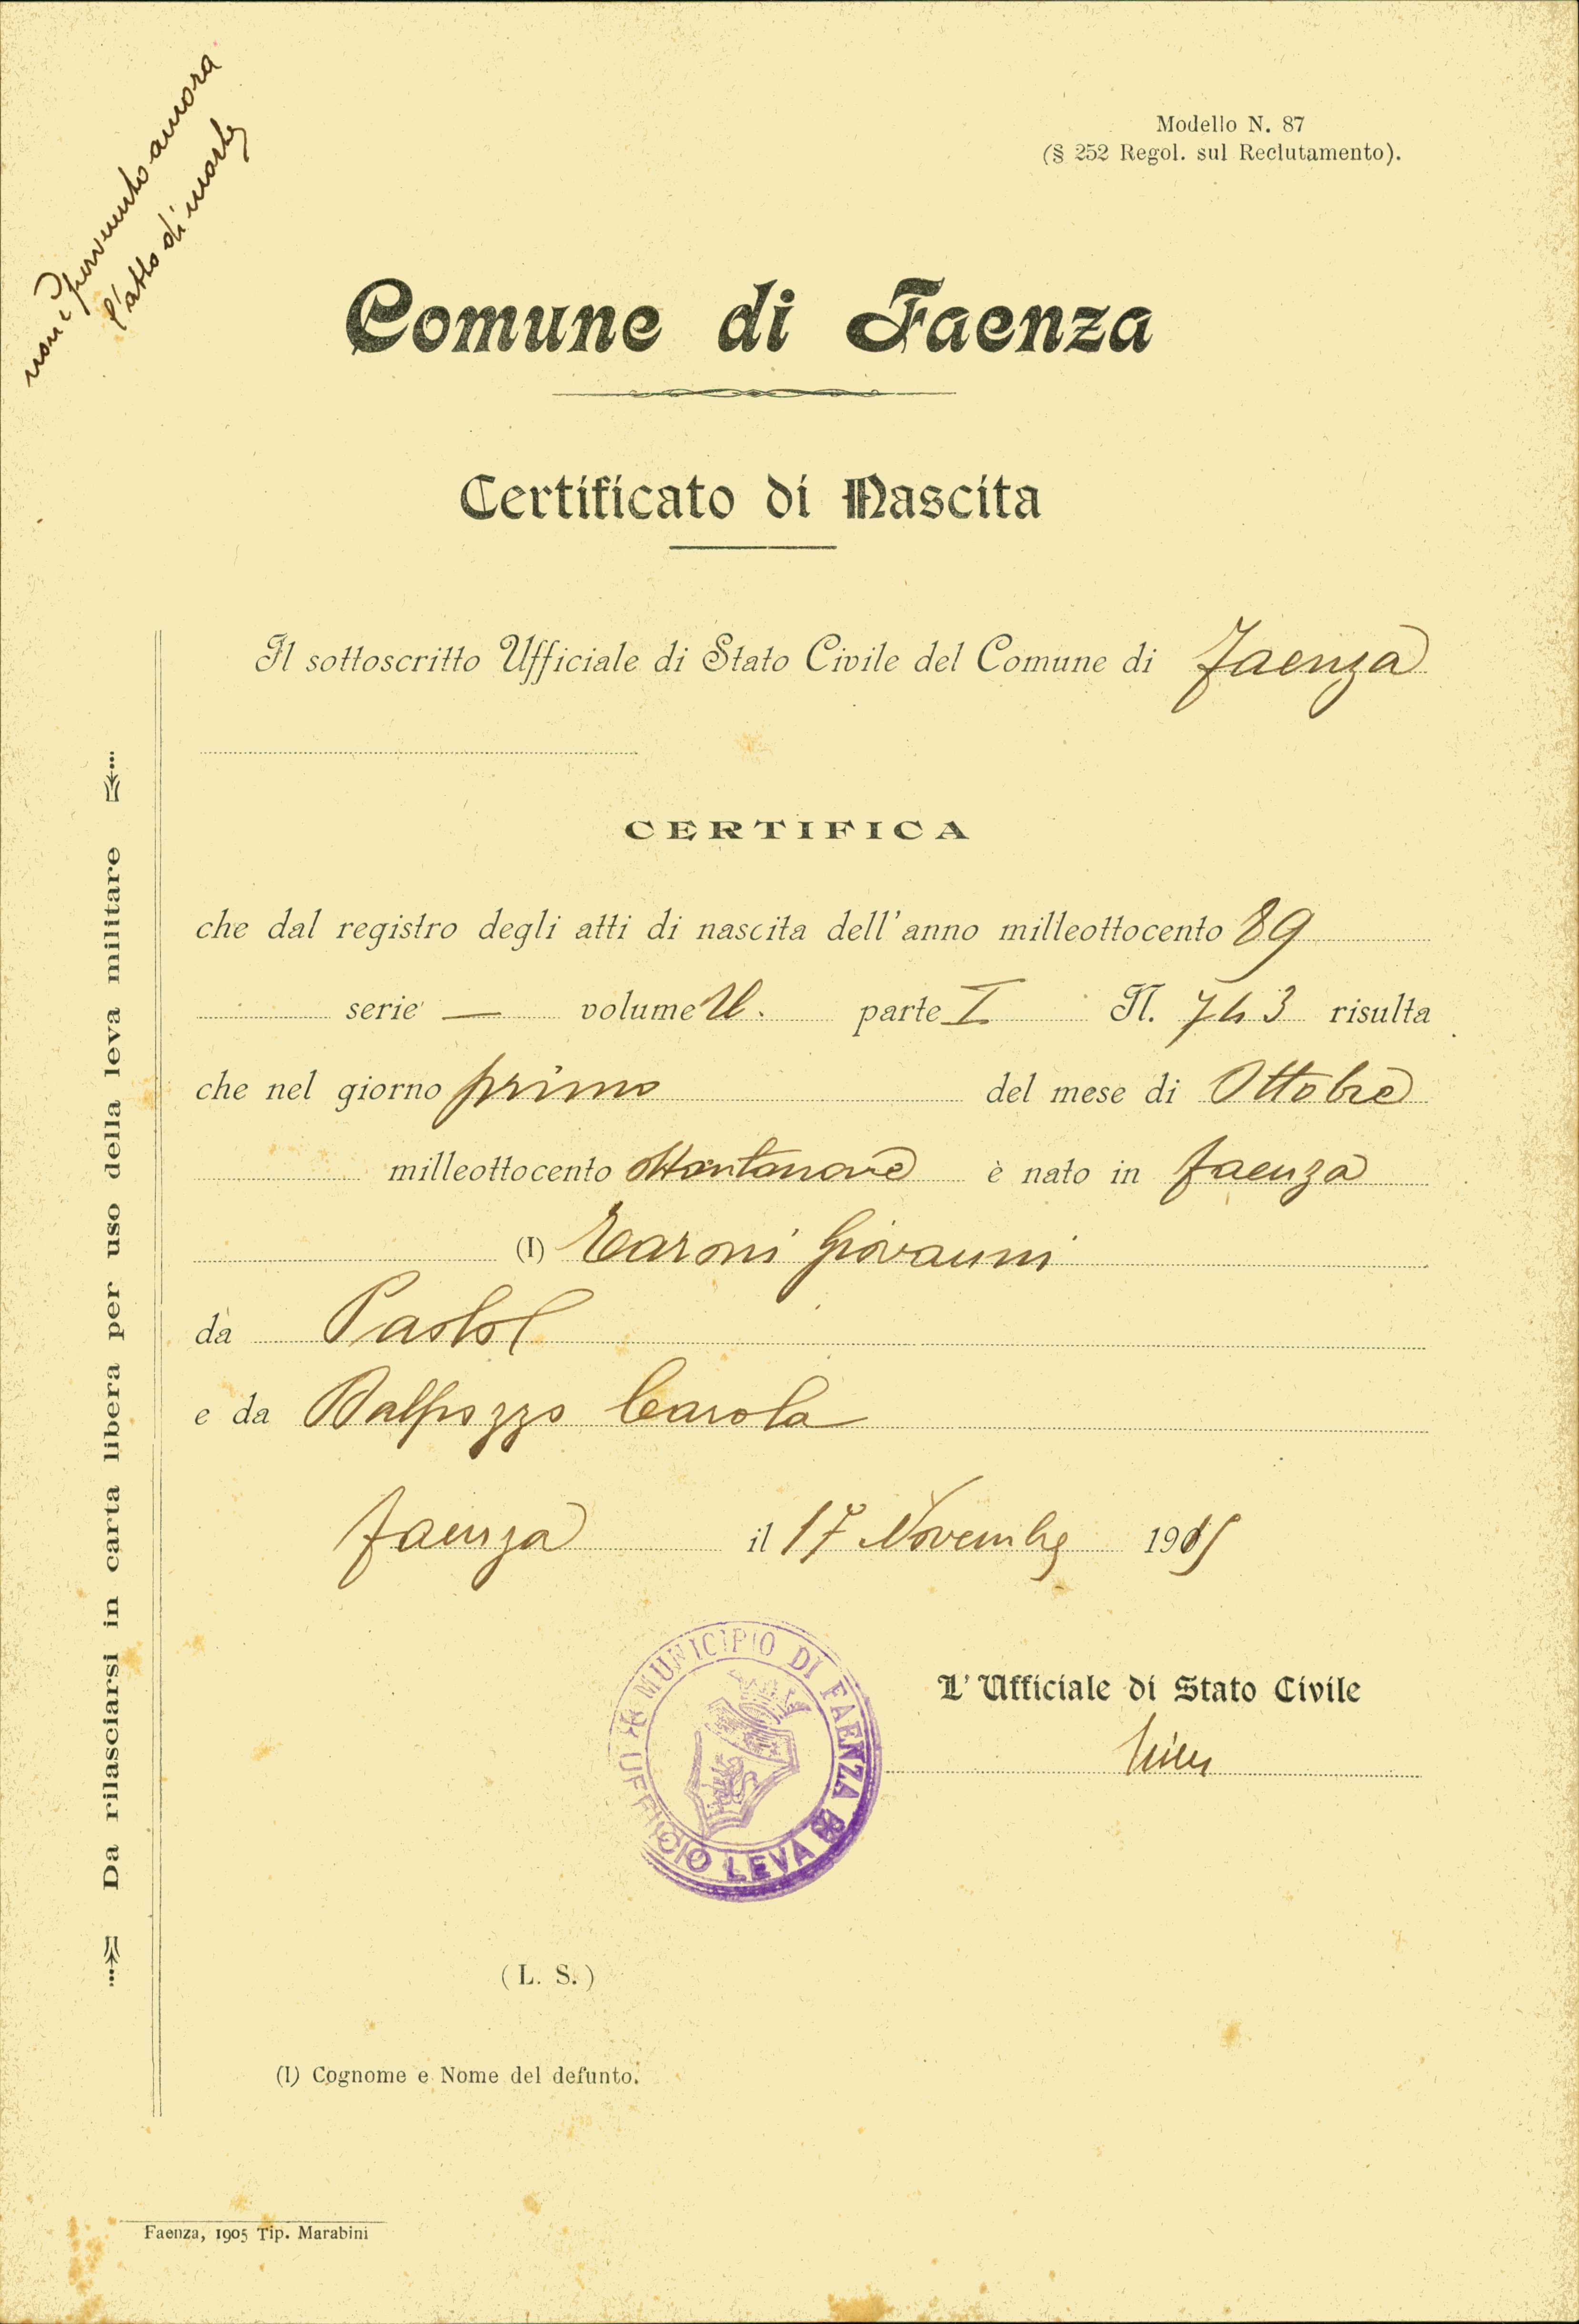 non è pervenuto ancora
l'atto di morte
Modello N. 87
(§ 252 Regol. sul Reclutamento).
Comune di Faenza
Certificato di Nascita
Il sottoscritto Ufficiale di Stato Civile del Comune di Faenza
CERTIFICA
che dal registro degli atti di nascita dell'anno milleottocento 89
serie — volume U. parte I N. 743 risulta
che nel giorno primo del mese di Ottobre
milleottocento ottantanove è nato in Faenza
(I) Giovanni
da Paolo
e da Dalpozzo Carola
Faenza il 17 Novembre 1915
MUNICIPIO DI FAENZA
UFFICIO LEVA
L'Ufficiale di Stato Civile
(L. S.)
(I) Cognome e Nome del defunto.
Faenza, 1905 Tip. Marabini
Da rilasciarsi in carta libera per uso della leva militare